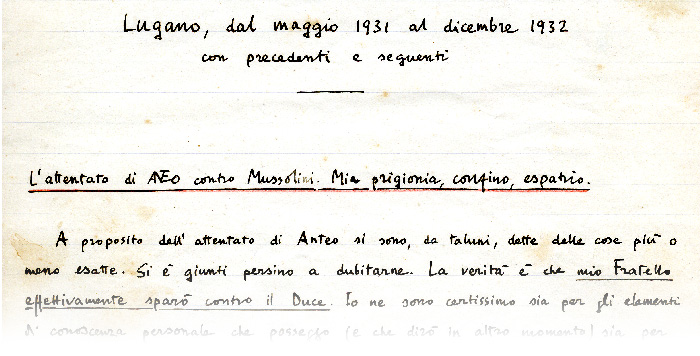 Lugano, dal maggio 1931 al dicembre 1932
con precedenti e seguenti
L'attentato di ANEO contro Mussolini. Mia prigionia, confino, espatrio.
A proposito dell' attentato di Anteo si sono, da taluni, dette delle cose più o
meno esatte. Si è giunti persino a dubitarne. La verità è che mio Fratello
effettivamente sparò contro il Duce. Io ne sono certissimo sia per gli elementi
di conoscenza personale che posseggo (e che dirò in altro momento) sia per